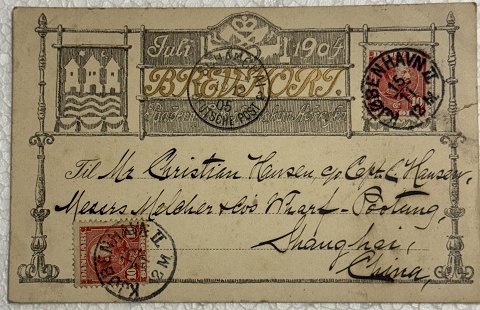 Juli 1904
BREVKORT.
SHANGHAI
05
DEUTSCHE POST
KJØBENHAVN II.
10
Til Mr Christian Hansen, c/o Capt. C. Hansen,
Messrs Melcher & Cos Wharf - Pootung,
Shanghai,
China,
KJØBENHAVN II.
2. M.
DANMARK
10